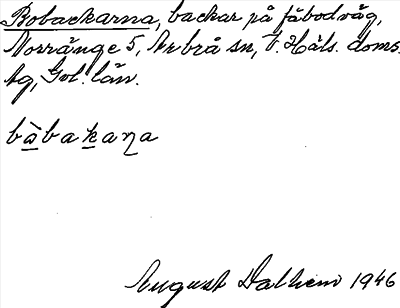 Bobackarna, backar på fäbodväg,
Norränge 5, Arbrå sn, V. Häls. doms.
tg, Gvl. län.
bàbakaṇa
August Dalhem 1946